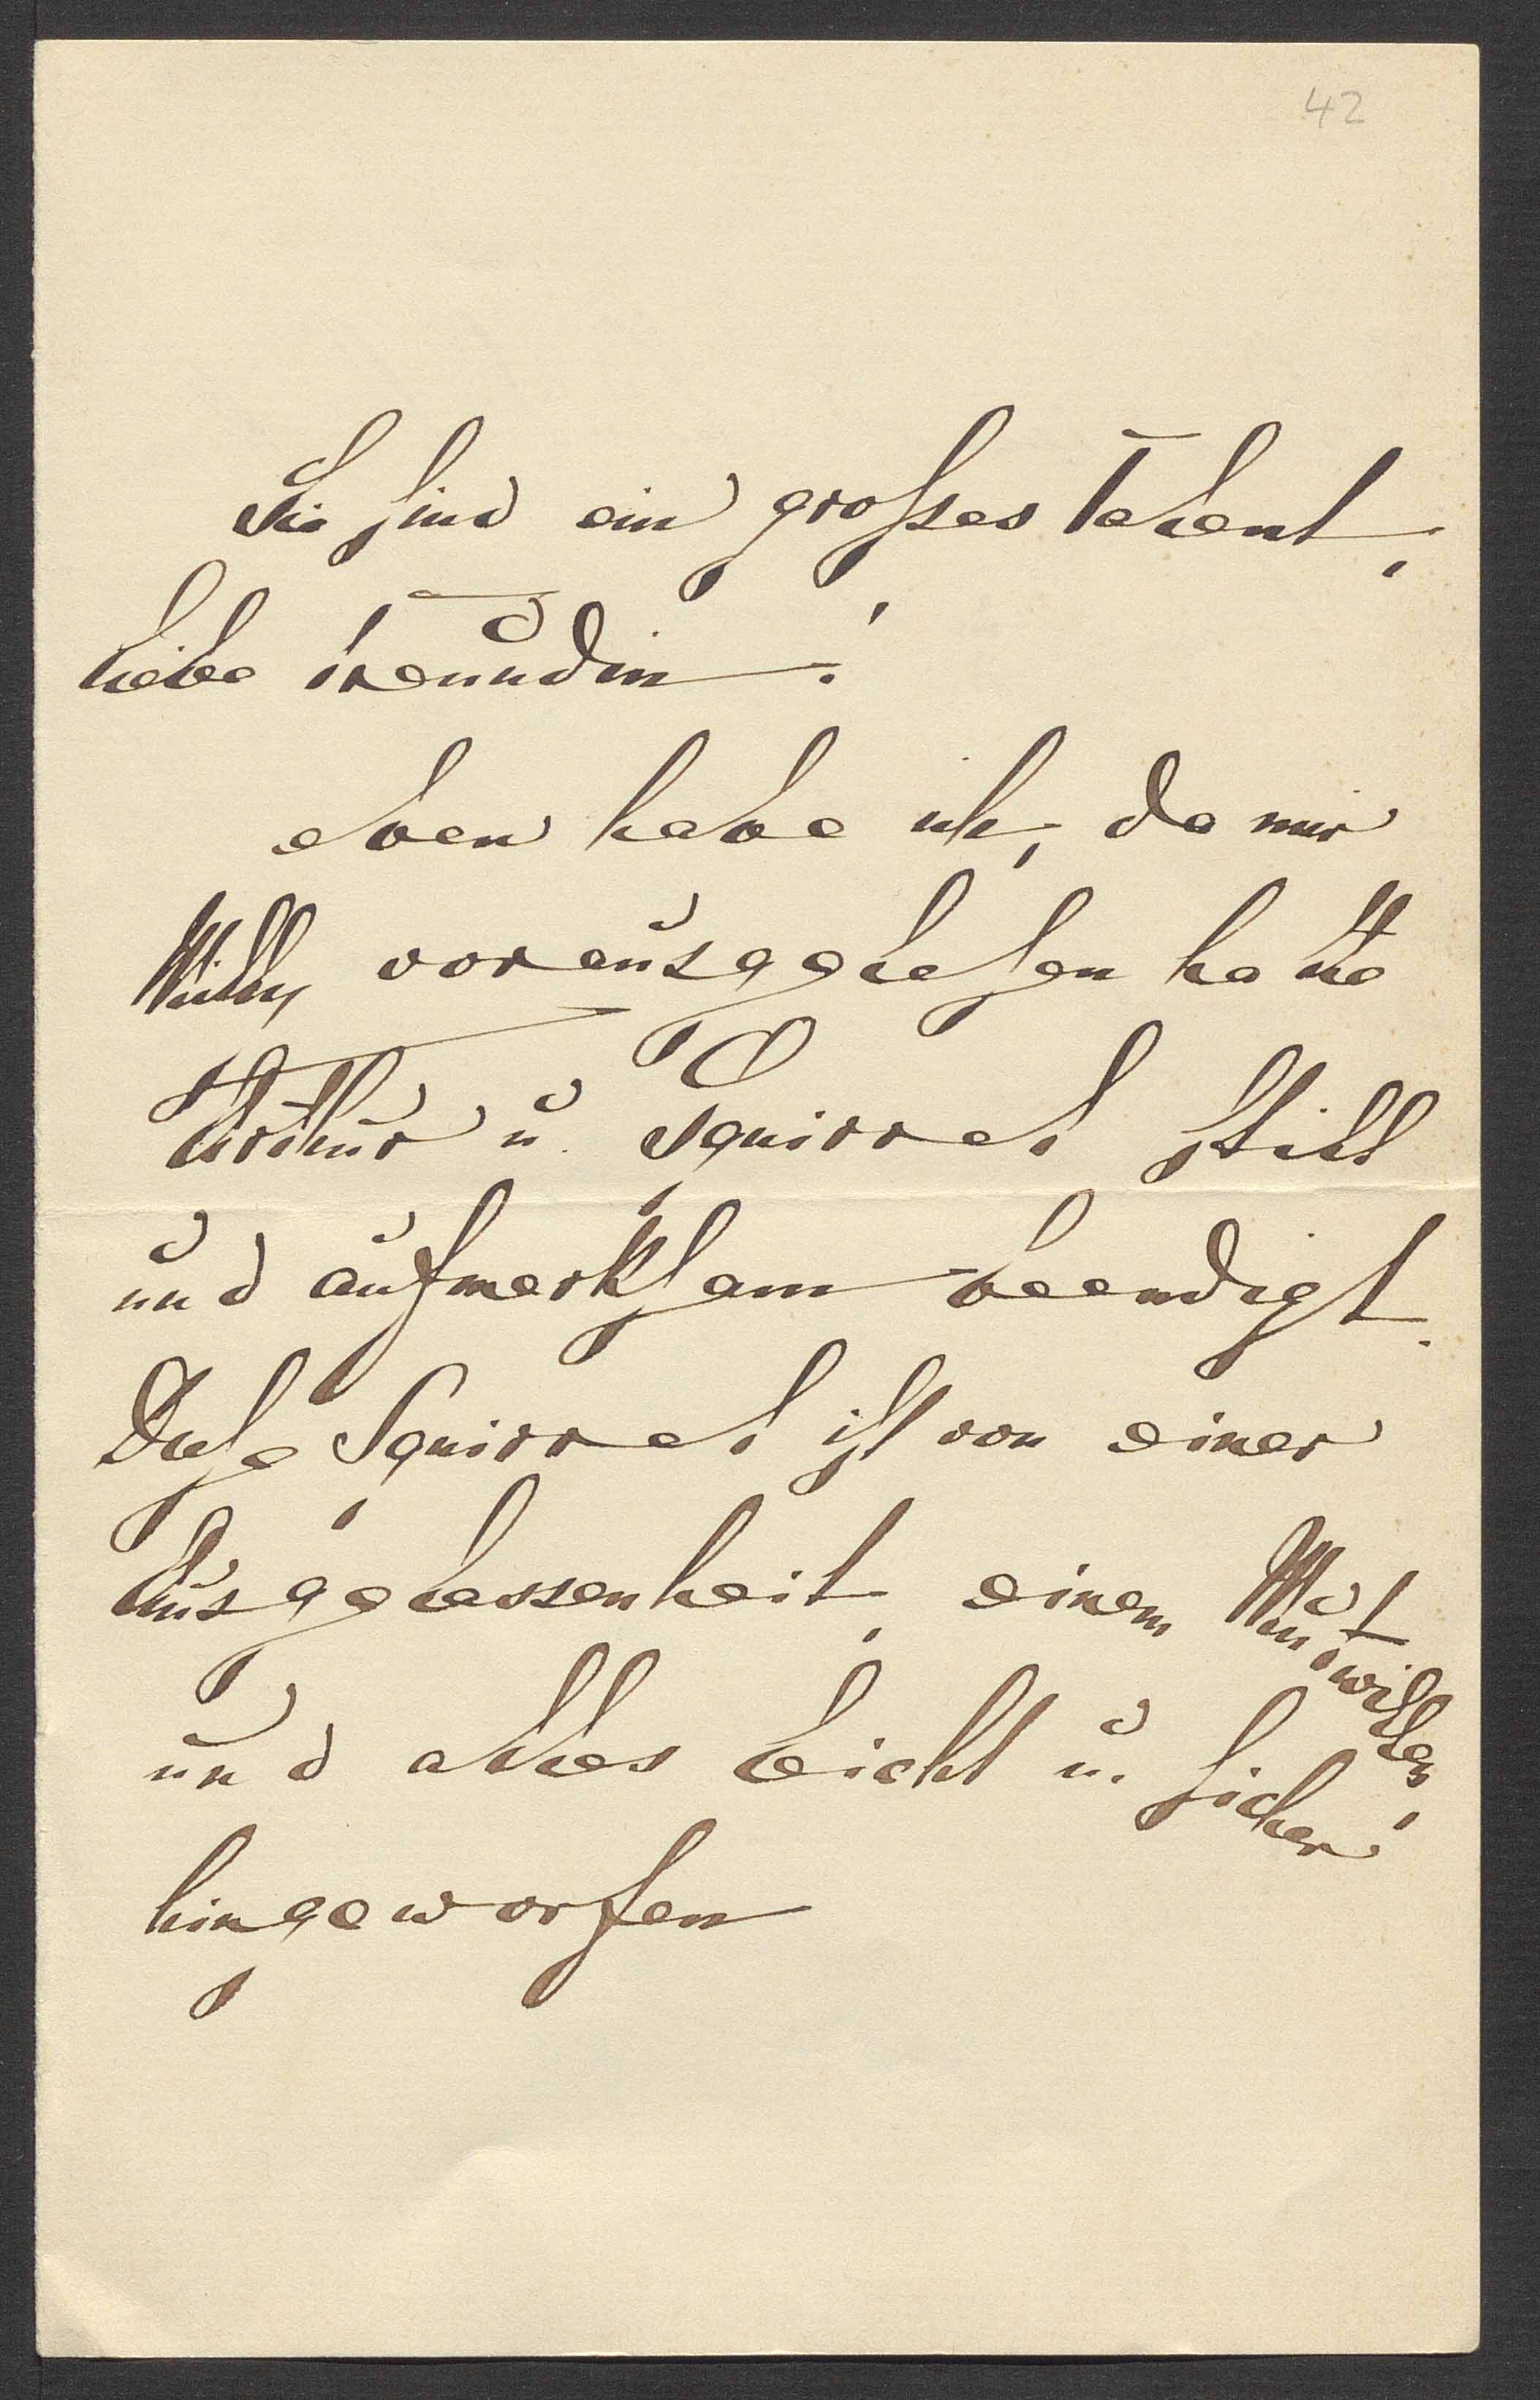 42
Sie sind ein großes Talent,
liebe Freundin!
eben habe ich, da mir
Willy vorausgelesen hatte
Arthur u. Squirrel still
und aufmerksam beendigt.
Diese Squirrel ist von einer
Ausgelassenheit, einem Mutwillen,
und alles leicht u. sicher
hingeworfen